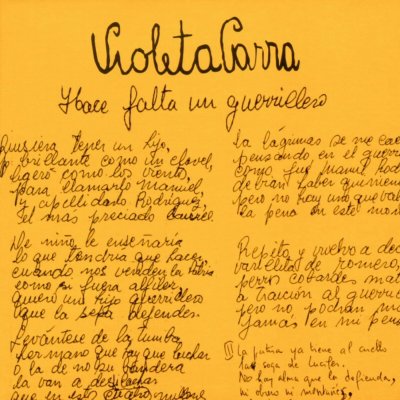 Violeta Parra
Hace falta un guerrillero
Quisiera tener un hijo,
brillante como un clavel,
ligero como los vientos,
para llamarlo Manuel,
y apellidarlo Rodríguez,
el más preciado laurel.
De niño le enseñaría
lo que tendría que hacer,
cuando nos venden la Patria
como si fuera alfiler,
quiero un hijo guerrillero
que la sepa defender.
Levántese de la tumba,
hermano que hay que luchar
o la de no su bandera
la van a
que en estos cuatro
La lágrimas se me cae
pensando en el guerri
como fue Manuel Rod
pero no hay uno que val
la pena en este mom
Repito y vuelvo a dec
varillita de romero,
perros cobardes mat
a traición al guerri
pero no podrán ma
jamás en mi pens
La patria ya tiene al cuello
la soga de Lucifer.
No hay alma que la defienda,
ni obrero ni montañés,